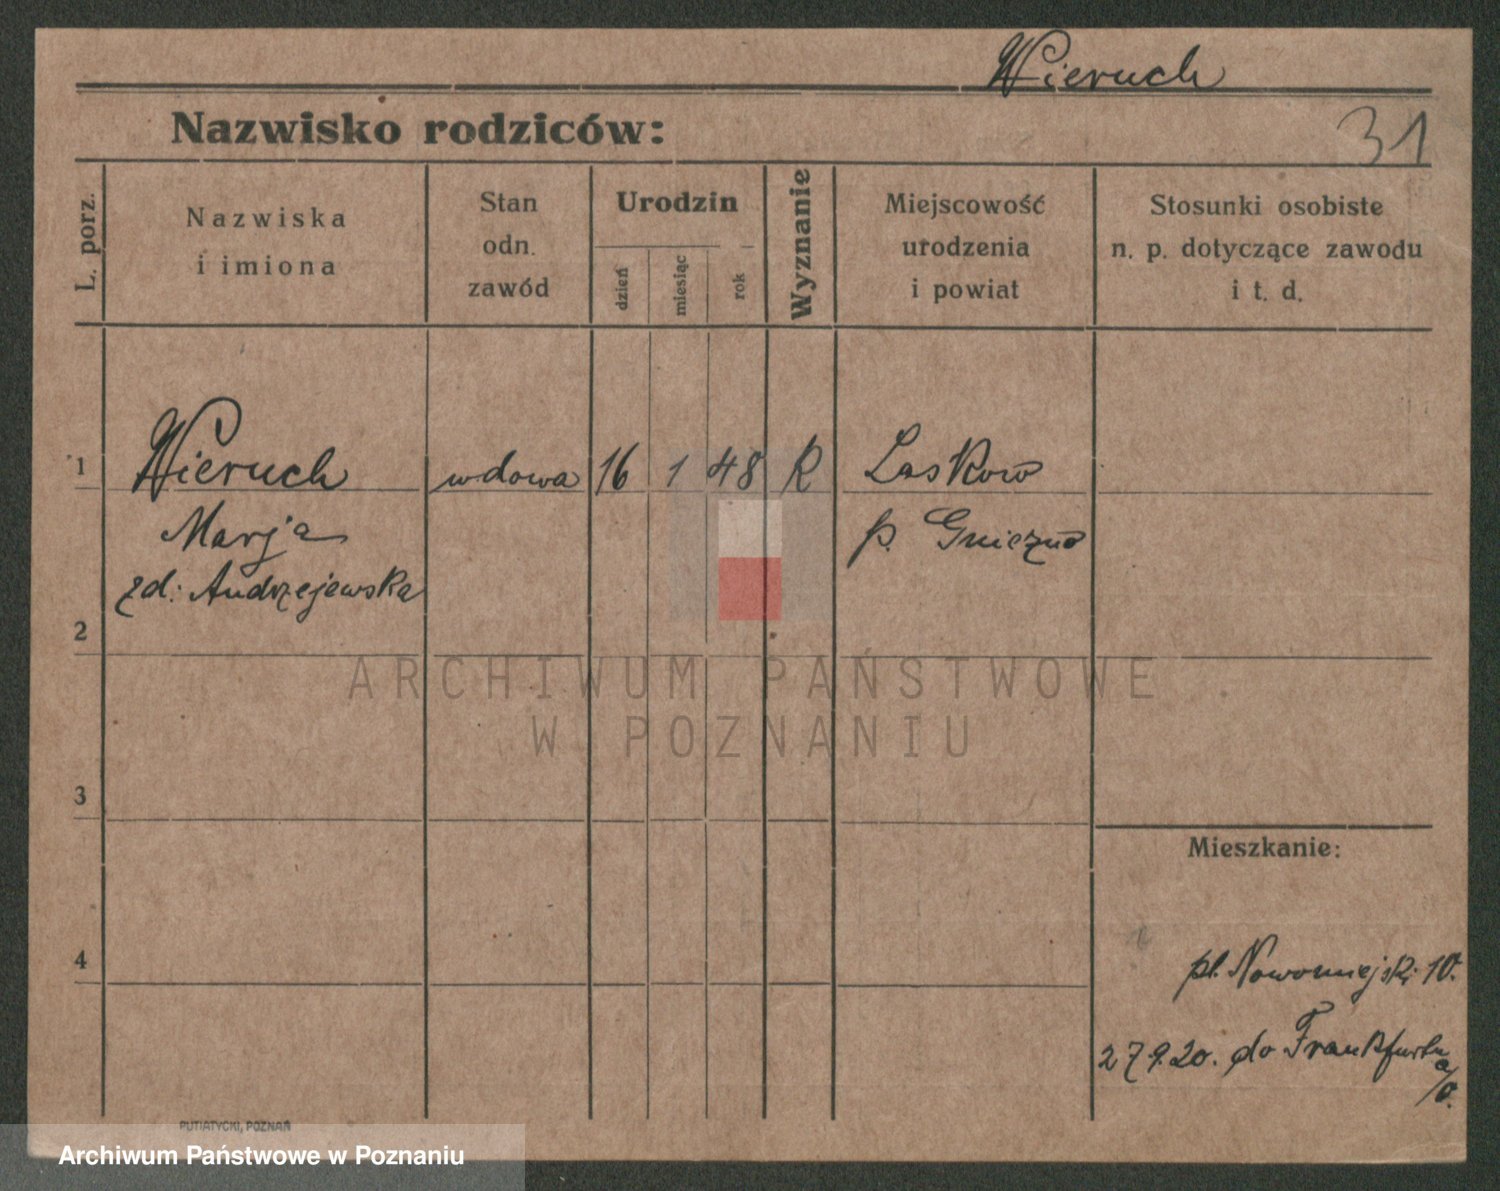 Wieruch
Nazwisko rodziców:
31
L. porz.
Nazwiska
i imiona
Stan
odn.
zawód
Urodzin
dzień
miesiąc
rok
Wyznanie
Miejscowość
urodzenia
i powiat
Stosunki osobiste
n. p. dotyczące zawodu
i t. d.
1
Wieruch wdowa 16 1 48 R Laskowo
Marja p. Gniezno
zd: Andrzejewska
2
ARCHIWUM PAŃSTWOWE
W POZNANIU
3
Mieszkanie:
4
pl. Nowomiejski 10.
27.9.20. do Frankfurtu
a/O.
PUTIATYCKI, POZNAŃ
Archiwum Państwowe w Poznaniu